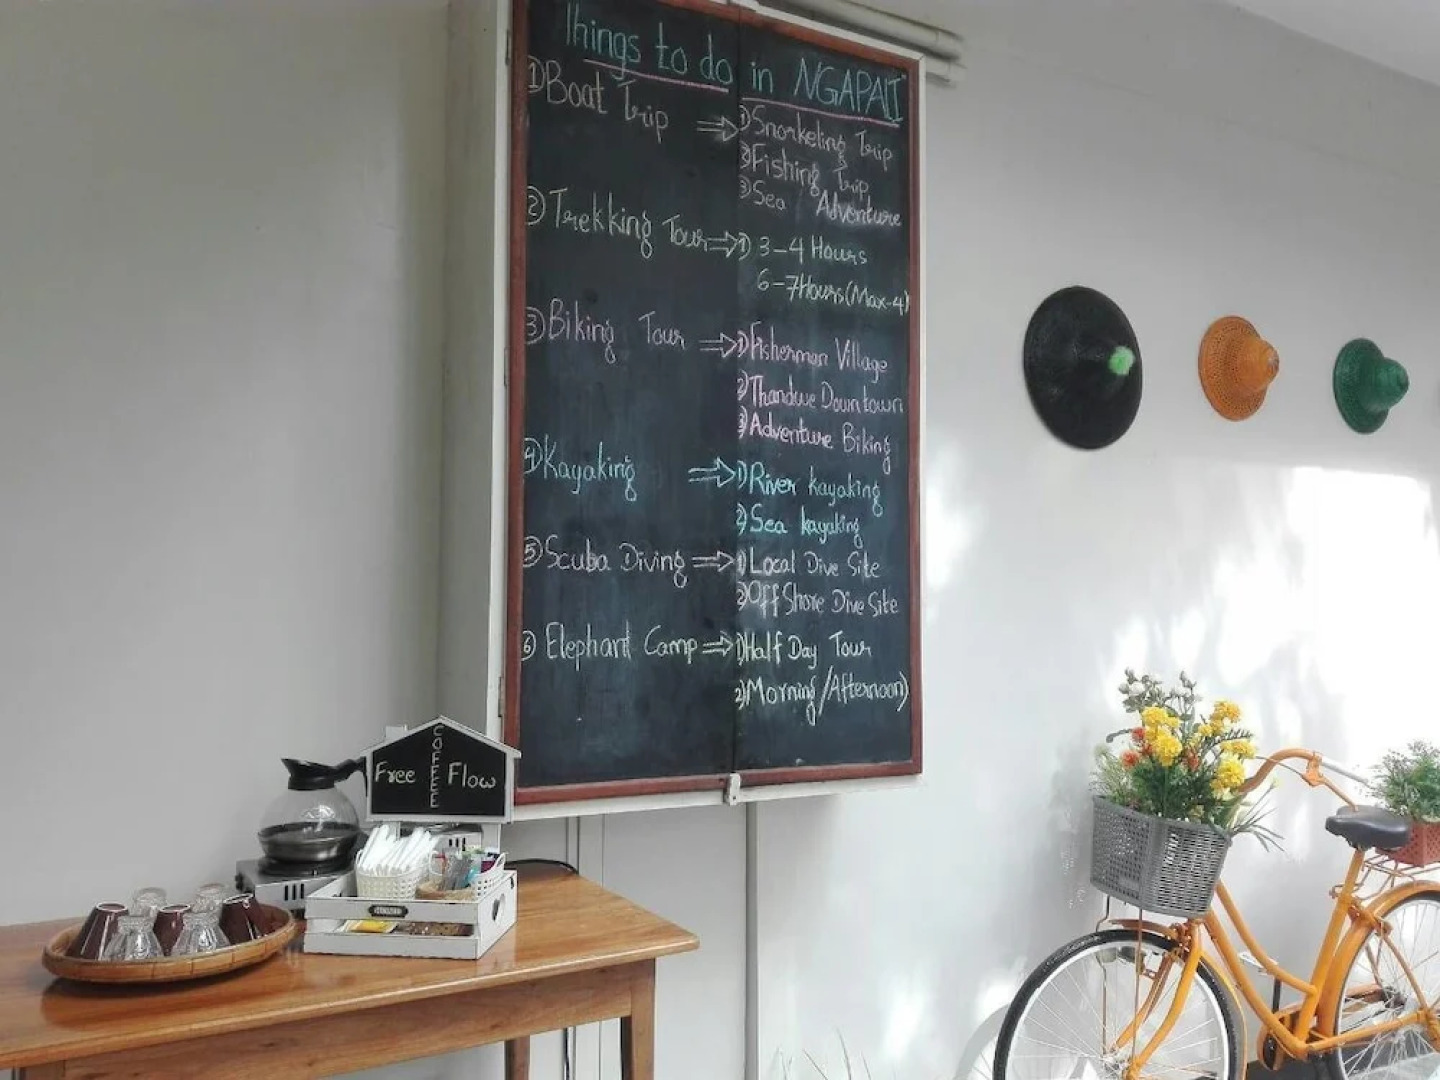 Things to do in NGAPALI
① Boat Trip ⇒ ① Snorkeling Trip
② Fishing Trip
③ Sea Adventure
② Trekking Tour ⇒ ① 3-4 Hours
6-7 Hours (Max-4)
③ Biking Tour ⇒ ① Fisherman Village
② Thandwe Downtown
③ Adventure Biking
④ Kayaking ⇒ ① River kayaking
② Sea kayaking
⑤ Scuba Diving ⇒ ① Local Dive Site
② Off Shore Dive Site
⑥ Elephant Camp ⇒ ① Half Day Tour
② Morning/Afternoon)
Free COFFEE Flow